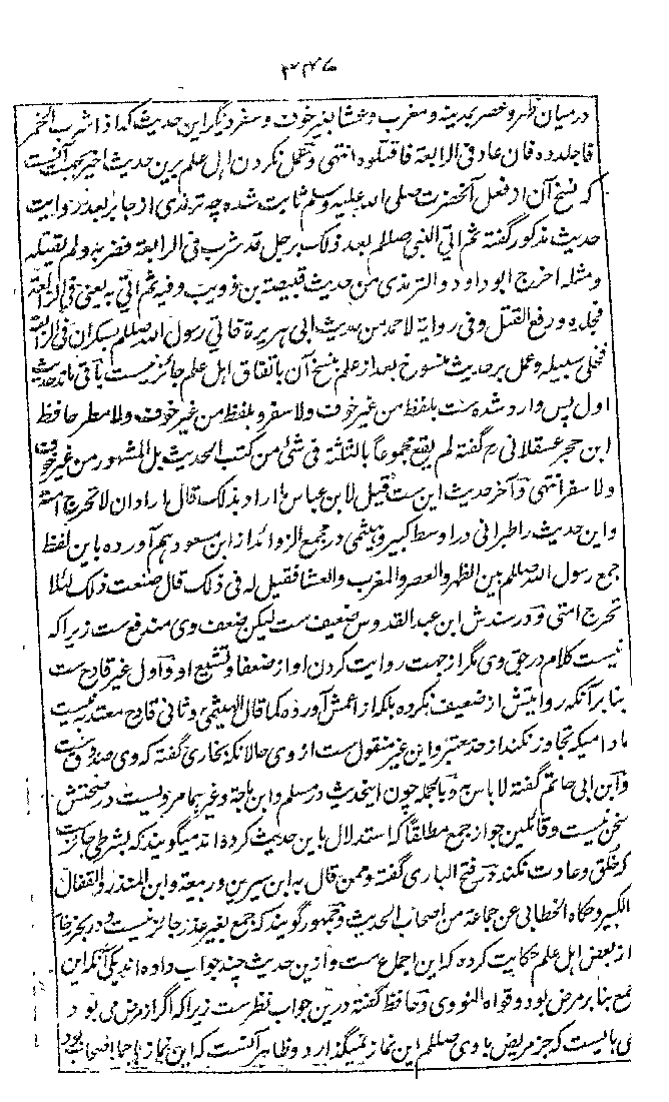 ۲۴۶
درمیان ظهر و عصر بمدینه و مغرب و عشا بغیر خوف و سفر دیگر این حدیث که اذا شرب الخمر
فاجلدوه فان عاد فی الرابعة فاقتلوه انتهی و نقل نکردن اهل علم برین حدیث اخیر بجهت آنست
که نسخ آن از فعل آنحضرت صلی الله علیه وسلم ثابت شده چه ترمذی از جابر بعد روایت
حدیث مذکور گفته ثم اتی النبی صللم بعد ذلک برجل قد شرب فی الرابعة فضربه ولم یقتله
ومثله اخرج ابوداود والترمذی من حدیث قبیصة بن ذویب وفیه ثم اتی به یعنی فی الرابعة
فجلده ورفع القتل وفی روایة لاحمد من حدیث ابی هریرة فاتی رسول الله صللم بسکران فی الرابعة
فخلی سبیله و عمل بر حدیث منسوخ بعد از علم بنسخ آن باتفاق اهل علم جائز نیست باقی ماند حدیث
اول پس وارد شده است بلفظ من غیر خوف ولا سفر و بلفظ من غیر خوف ولا مطر حافظ
ابن حجر عسقلانی رح گفته لم یقع مجموعاً بالثلثة فی شئ من کتب الحدیث بل المشهور من غیر خوف
ولا سفر انتهی و آخر حدیث این ست قیل لابن عباس ما اراد بذلک قال اراد ان لا تحرج امته
و این حدیث را طبرانی در اوسط و کبیر و هیثمی در مجمع الزوائد از ابن مسعود هم آورده باین لفظ
جمع رسول الله صللم بین الظهر والعصر والمغرب والعشا فقیل له فی ذلک قال صنعت ذلک لئلا
تحرج امتی و در سندش ابن عبد القدوس ضعیف ست لیکن ضعف وی مندفع ست زیرا که
نیست کلام در حق وی مگر از جهت روایت کردن او از ضعفا و تشیع او و اول غیر قادح ست
بنا بر آنکه روایتش از ضعیف نکرده بلکه از اعمش آورده کما قال الهیثمی و ثانی قادح معتد به نیست
مادامیکه تجاوز نکند از حد معتبر و این غیر منقول ست از وی حالانکه بخاری گفته که وی صدوق ست
و ابن ابی حاتم گفته لا باس به و بالجمله چون این حدیث در مسلم و ابن ماجة و غیرهما مرویست در صحتش
سخن نیست و قائلین جواز جمع مطلقاً که استدلال باین حدیث کرده اند میگویند که بشرطی جائز ست
که خلق و عادت نکند و در فتح الباری گفته وممن قال به ابن سیرین وربیعة وابن المنذر والقفال
الکبیر وحکاه الخطابی عن جماعة من اصحاب الحدیث و جمهور گویند که جمع بغیر عذر جائز نیست و در بحر زخار
از بعض اهل علم حکایت کرده که این اجماع ست و ازین حدیث چند جواب داده اند یکی آنکه این
جمع بنا بر مرض بود و قواه النووی و حافظ گفته درین جواب نظر ست زیرا که اگر از مرض می بود
می بایست که جز مریض با وی صللم این نماز نمیگذارد و ظاهر آنست که این نماز با اصحاب بود